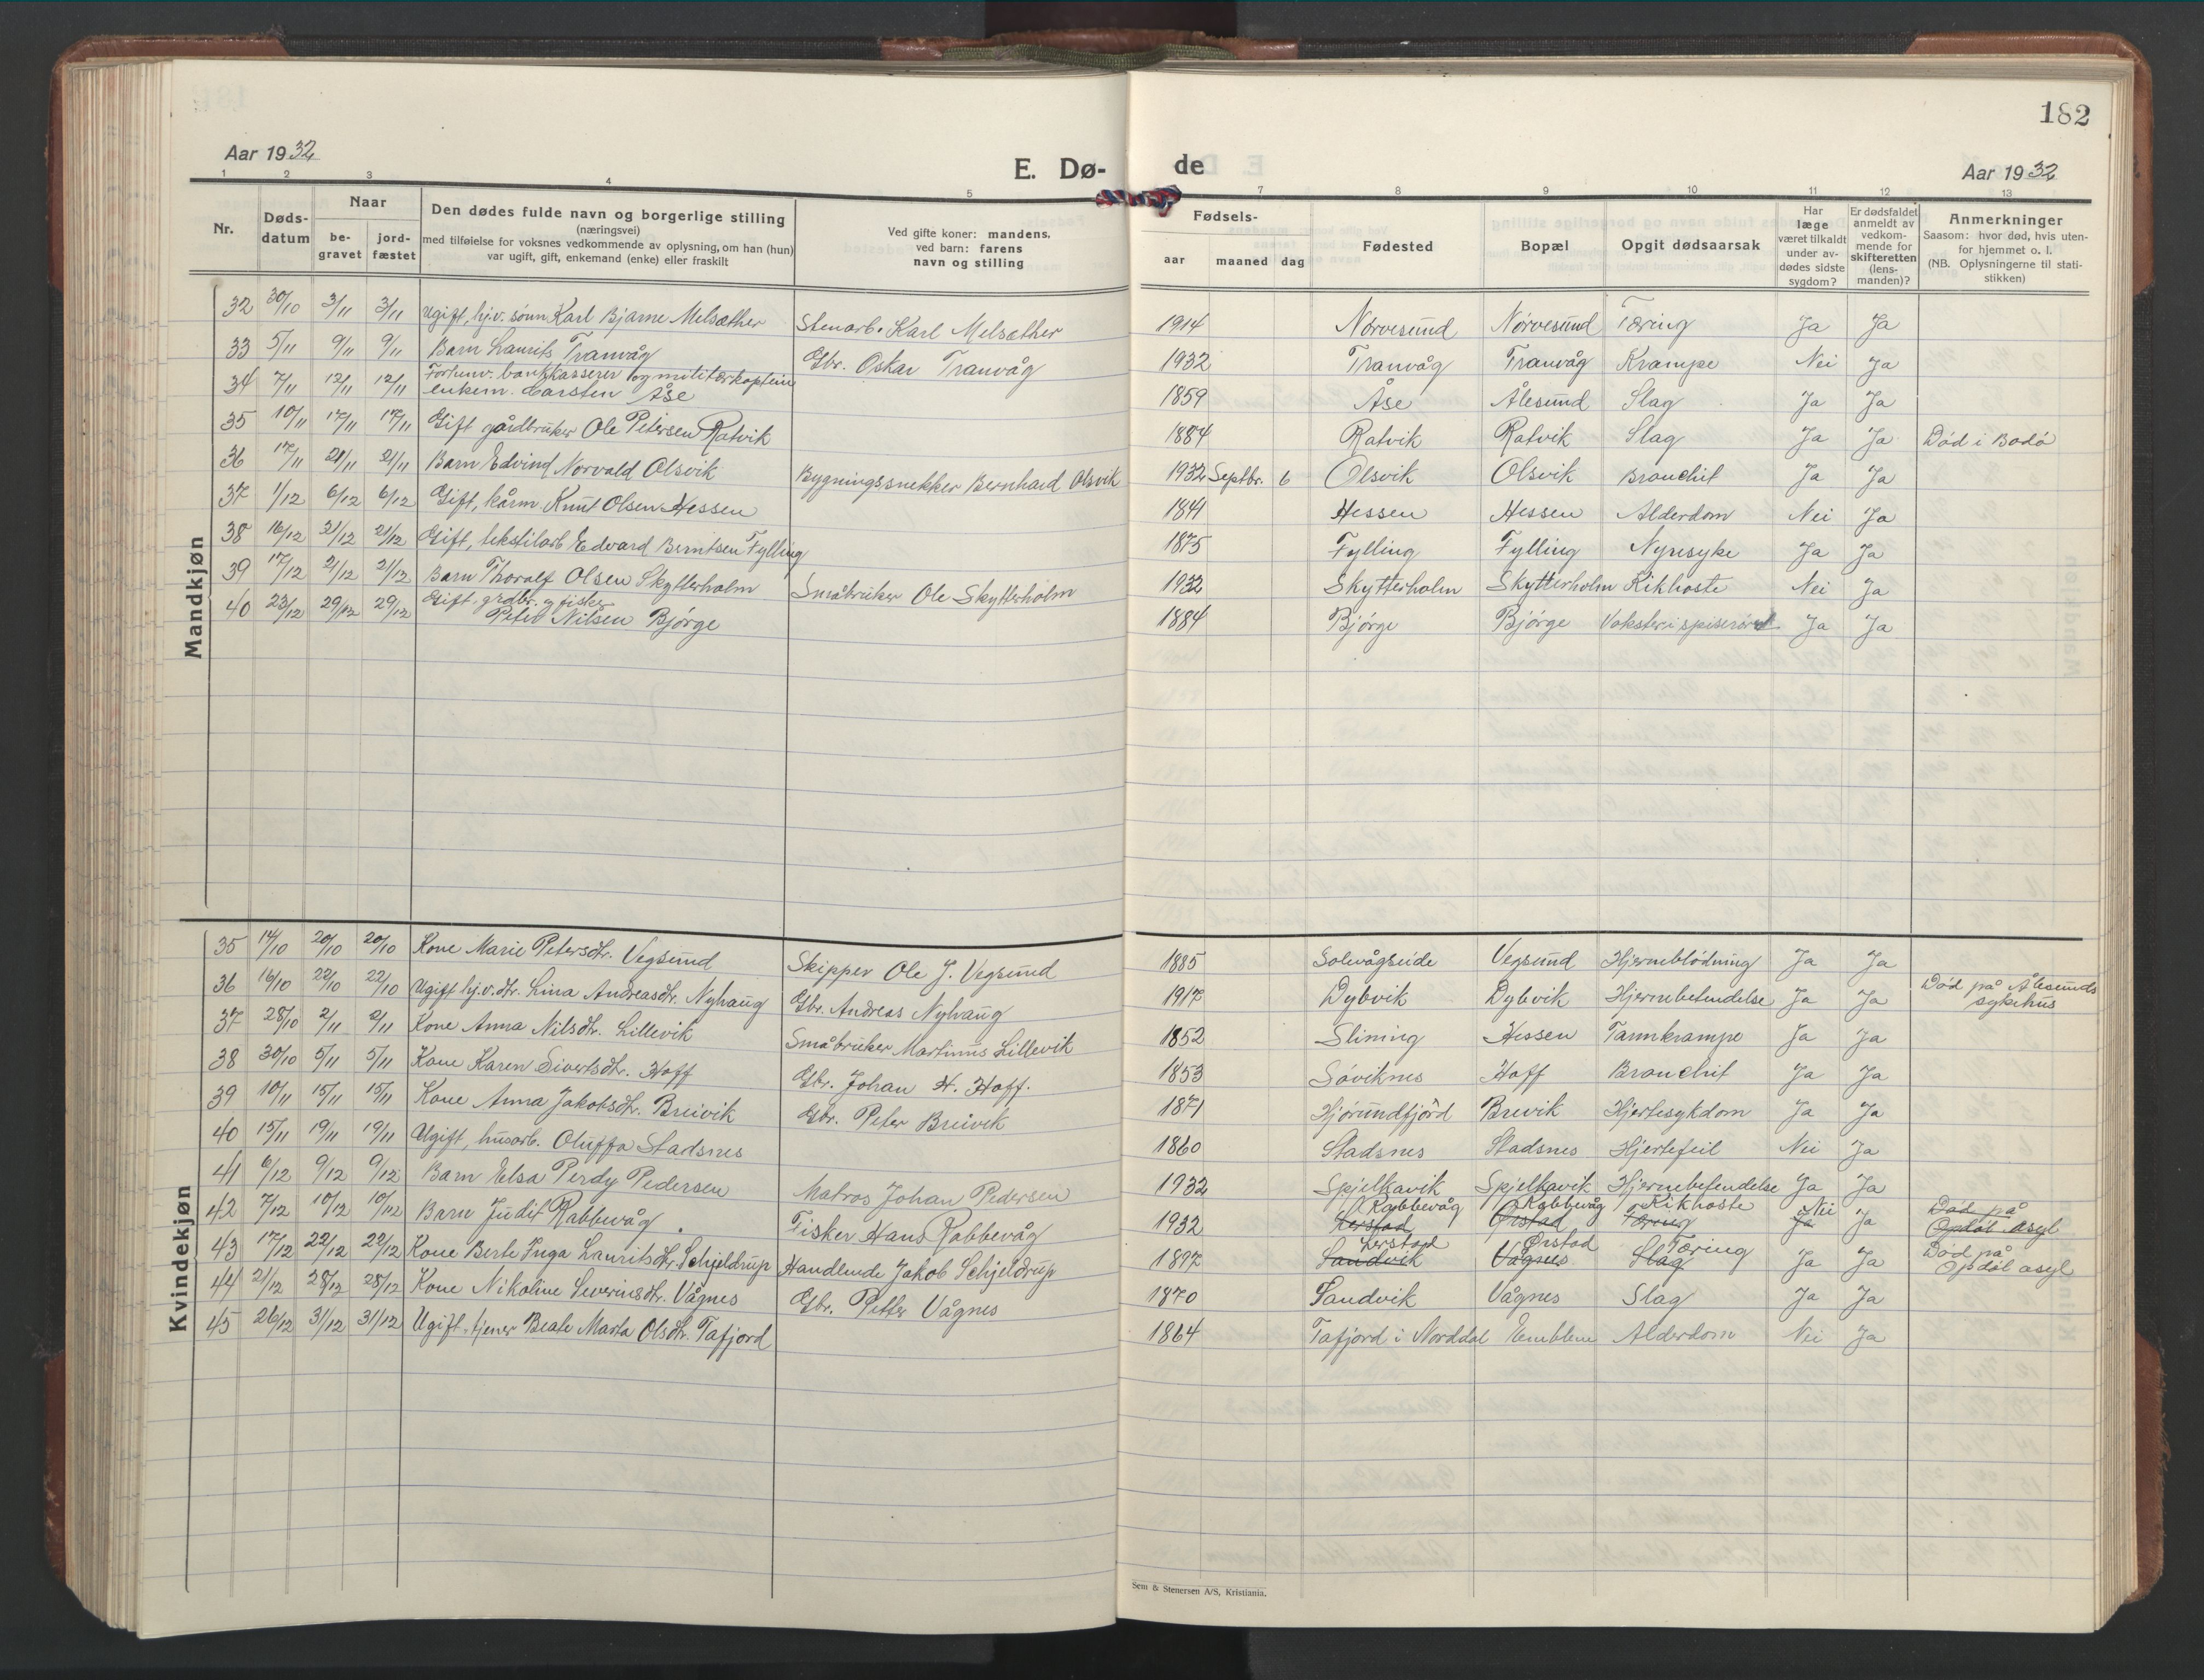 182
Aar 1932 E. Dø- de Aar 1932
1 2 3 4 5 7 8 9 10 11 12 13
Nr. Døds-datum Naar be-gravet jord-fæstet Den dødes fulde navn og borgerlige stilling (næringsvei) med tilføielse for voksnes vedkommende av oplysning, om han (hun) var ugift, gift, enkemand (enke) eller fraskilt Ved gifte koner: mandens, ved barn: farens navn og stilling Fødsels- aar maaned dag Fødested Bopæl Opgit dødsaarsak Har læge været tilkaldt under av-dødes sidste sygdom? Er dødsfaldet anmeldt av vedkom-mende for skifteretten (lens-manden)? Anmerkninger Saasom: hvor død, hvis uten-for hjemmet o. l. (NB. Oplysningerne til stati-stikken)
Mandkjøn
32 30/10 3/11 3/11 Ugift, hj.v. sønn Karl Bjarne Melsæther Stenarb. Karl Melsæther 1914 Nørvesund Nørvesund Tæring Ja Ja
33 5/11 9/11 9/11 Barn Laurits Tranvåg Gbr. Oskar Tranvåg 1932 Tranvåg Tranvåg Krampe Nei Ja
34 7/11 12/11 12/11 Forhenv. bankkasserer og militærkaptein enkem. Carsten Åse 1859 Åse Ålesund Slag Ja Ja
35 10/11 17/11 17/11 Gift gårdbruker Ole Petersen Ratvik 1884 Ratvik Ratvik Slag Ja Ja Død i Bodø
36 17/11 21/11 21/11 Barn Edvind Norvald Olsvik Bygningssnekker Bernhard Olsvik 1932 Septbr. 6 Olsvik Olsvik Bronchit Ja Ja
37 1/12 6/12 6/12 Gift, kårm. Knut Olsen Hessen 1841 Hessen Hessen Alderdom Nei Ja
38 16/12 21/12 21/12 Gift, tekstilarb Edvard Berntsen Fylling 1875 Fylling Fylling Nyresyke Ja Ja
39 17/12 21/12 21/12 Barn Thoralf Olsen Skytterholm Småbruker Ole Skytterholm 1932 Skytterholm Skytterholm Kikhoste Nei Ja
40 23/12 29/12 29/12 Gift, grdbr. og fisker Peter Nilsen Bjørge 1884 Bjørge Bjørge Vokster i spiserøret Ja Ja
Kvindekjøn
35 14/10 20/10 20/10 Kone Marie Petersdtr. Vegsund Skipper Ole J. Vegsund 1885 Solevågseide Vegsund Hjerneblødning Ja Ja
36 16/10 22/10 22/10 Ugift hj.v.dtr. Lina Andreasdtr. Nyhaug Gbr. Andreas Nyhaug 1917 Dybvik Dybvik Hjernebetendelse Ja Ja Død på Ålesunds sykehus
37 28/10 2/11 2/11 Kone Anna Nilsdtr. Lillevik Småbruker Martinus Lillevik 1852 Slining Hessen Tarmkrampe Ja Ja
38 30/10 5/11 5/11 Kone Karen Sivertsdtr. Hoff Gbr. Johan H. Hoff. 1853 Søviknes Hoff Bronchit Ja Ja
39 10/11 15/11 15/11 Kone Anna Jakobsdtr. Breivik Gbr. Peter Breivik 1871 Hjørundfjord Brevik Hjertesykdom Ja Ja
40 15/11 19/11 19/11 Ugift, husarb. Oluffa Stadsnes 1860 Stadsnes Stadsnes Hjertefeil Nei Ja
41 6/12 9/12 9/12 Barn Elsa Perdy Pedersen Matros Johan Pedersen 1932 Spjelkavik Spjelkavik Hjernebetendelse Ja Ja
42 7/12 10/12 10/12 Barn Judit Rabbevåg Fisker Hans Rabbevåg 1932 Lerstad Rabbevåg Ørstad Rabbevåg Tæring Kikhoste Ja Nei Ja Død på Opdøl asyl
43 17/12 22/12 22/12 Kone Berte Inga Lauritsdtr. Schjeldrup Handlende Jakob Schjeldrup 1897 Sandvik Lerstad Vågnes Ørstad Slag Tæring Ja Ja Død på Opdøl asyl
44 21/12 28/12 28/12 Kone Nikoline Severinsdtr. Vågnes Gbr. Petter Vågnes 1870 Sandvik Vågnes Slag Ja Ja
45 26/12 31/12 31/12 Ugift, tjener Beate Marta Olsdtr. Tafjord 1864 Tafjord i Norddal Emblem Alderdom Nei Ja
Sem & Stenersen A/S, Kristiania.